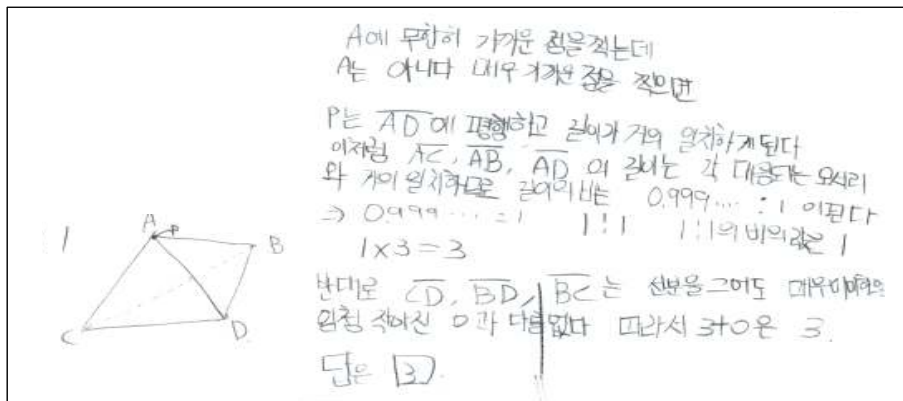 A에 무한히 가까운 점을 찍는데
A는 아니다 매우 가까운 점을 찍으면
P는 AD에 평행하고 길이가 거의 일치하게 된다
이처럼 AC, AB, AD 의 길이는 각 대응되는 모서리
와 거의 일치하므로 길이의 비는 0.999··· : 1 이된다
⇒ 0.999··· = 1 1:1 1:1의 비의 값은 1
1×3=3
반대로 CD, BD, BC는 선분을 그어도 매우
엄청 작아진 0과 다름없다 따라서 3+0은 3.
답은 3.
1
A
P
B
C
D